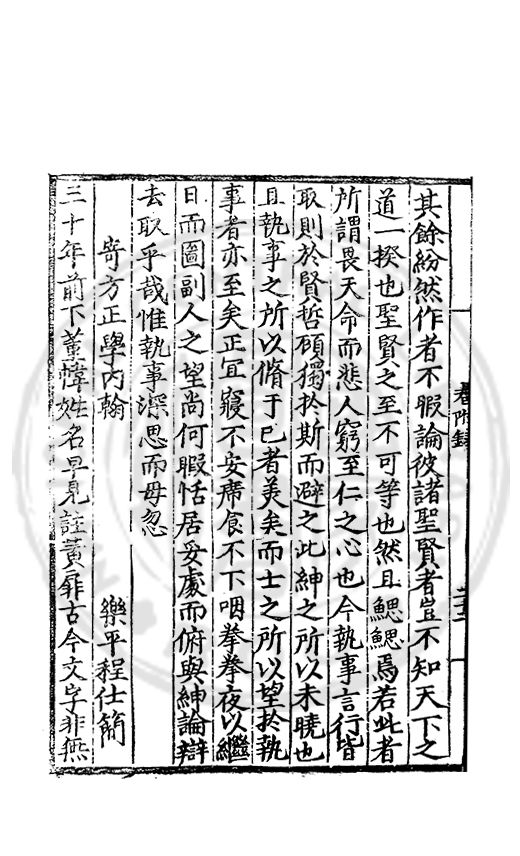 其餘紛然作者不暇論彼諸聖賢者豈不知天下之
道一揆也聖賢之至不可等也然且鰓鰓焉若此者
所謂畏天命而悲人窮至仁之心也今執事言行皆
取則於賢哲顧獨於斯而避之此紳之所以未曉也
且執事之所以脩于己者美矣而士之所以望於執
事者亦至矣正宜寢不安席食不下咽拳拳夜以繼
日而圖副人之望尚何暇恬居妥處而俯與紳論辯
去取乎哉惟執事深思而毋忽
寄方正學內翰
樂平程仕簡
三十年前下董幃姓名早見註黃扉古今文字非無
卷附錄